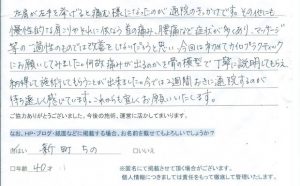 左肩が左手を挙げると痛む様になったのが通院のきっかけですが、その他にも
慢性的な肩こりやそれに伴なう首の痛み、腰痛など症状が多くあり、マッサージ
等の一過性のものでは改善をしないだろうと思い、今回はじめてカイロプラクティック
にお願いしてみました。何故痛みが出るのかを骨の模型で丁寧に説明してもらえ、
納得して施術してもらうことが出来ました。今では2週間おきに通院するのが
待ち遠しく感じています。これからも宜しくお願いいたします。
ご協力ありがとうございました。今後の施術、運営に活かしてまいります。
なお、HP・ブログ・紙面などに掲載する場合、お名前を載せてもよろしいでしょうか?
はい 新町 ちの □いいえ
□年齢 40才 ※匿名にて掲載させて頂く場合がございます。
個人情報につきましては責任をもって徹底して管理いたします。